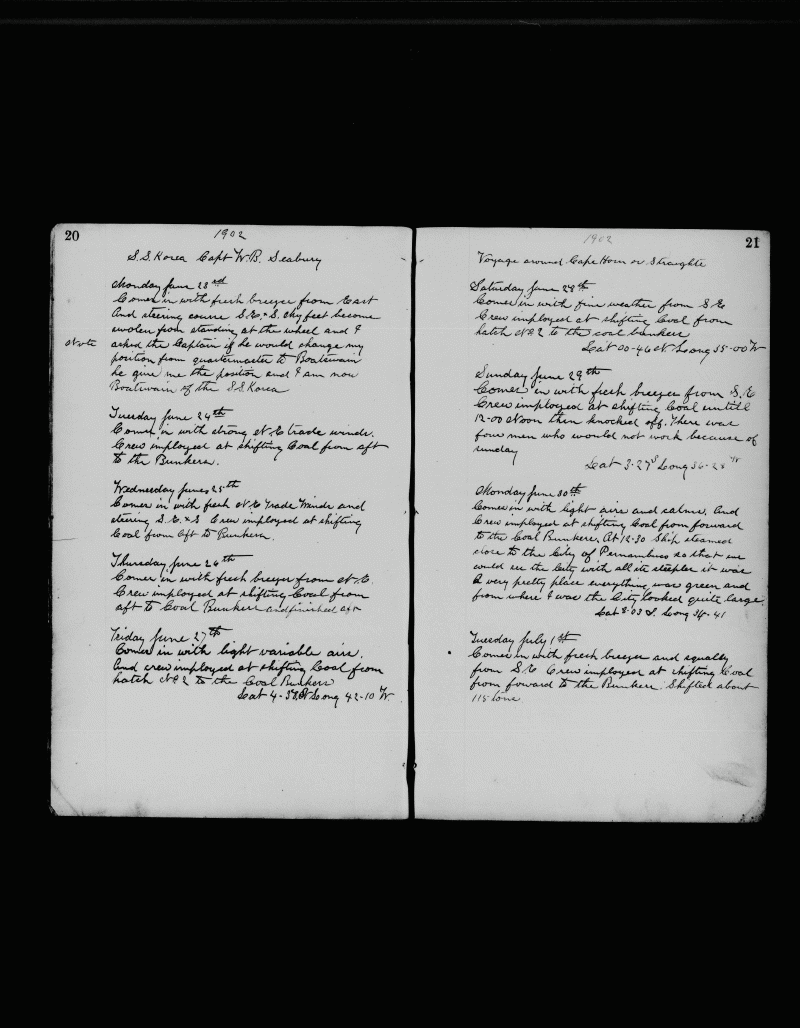 20
1902
S.S. Korea Capt W.B. Seabury
Monday June 23rd
Comes in with fresh breezes from East
And steering course S.E. & S. My feet become
swolen from standing at the wheel and I
Note
asked the Captain if he would change my
position from quartermaster to Boatswain
he give me the position and I am now
Boatswain of the S.S. Korea
Tuesday June 24th
Comes in with strong N.E. trade winds.
Crew imployed at shifting Coal from aft
to the Bunkers.
Wednesday June 25th
Comes in with fresh N.E. Trade Winds and
steering S.E. & S Crew imployed at shifting
Coal from aft to Bunkers.
Thursday June 26th
Comes in with fresh breezes from N.E.
Crew imployed at shifting Coal from
aft to Coal Bunkers and finished aft
Friday June 27th
Comes in with light variable airs.
And crew imployed at shifting Coal from
hatch No 2 to the Coal Bunkers
Lat 4-58 N Long 42-10 W
21
1902
Voyage around Cape Horn or Straights
Saturday June 28th
Comes in with fine weather from S.E
Crew imployed at shifting Coal from
hatch No 2 to the coal bunkers
Lat 00-46 N Long 35-00 W
Sunday June 29th
Comes in with fresh breezes from S.E
Crew imployed at shifting Coal untill
12-00 Noon then knocked off. There was
four men who would not work because of
sunday
Lat 3-27 S Long 36-28 W
Monday June 30th
Comes in with light airs and calms. And
Crew imployed at shifting Coal from forward
to the Coal Bunkers. At 12-30 Ship steamed
close to the City of Pernambuco so that we
could see the City with all its steeples it was
A very pretty place everything was green and
from where I was the City looked quite large.
Lat 8-03 S. Long 34-41
Tuesday July 1st
Comes in with fresh breezes and squally
from S.E Crew imployed at shifting Coal
from foward to the Bunkers. Shifted about
115 tons